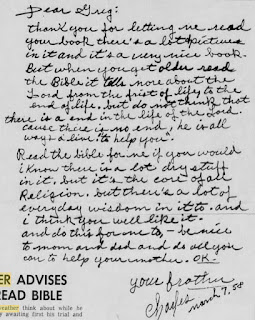 Dear Greg:
thank you for letting me read
your book there's a lot pictures
in it and it's a very nice book.
But when you get older read
the Bible it tells more about the
Lord from the first of life to the
end of life. but do not think that
there is a end in the life of the Lord.
cause there is no end, he is all
ways alive to help you.
Read the bible for me if you would
i know there is a lot dry stuff
in it. but it's the core of all
Religion. but there's a lot of
everyday wisdom in it to. and
i think you well like it.
and do this for me to, - be nice
to mom and dad and do all you
can to help your mother. OK.
your brother
Charles
march 7, 58
ER ADVISES
READ BIBLE
weather think about while he
y awaiting first his trial and